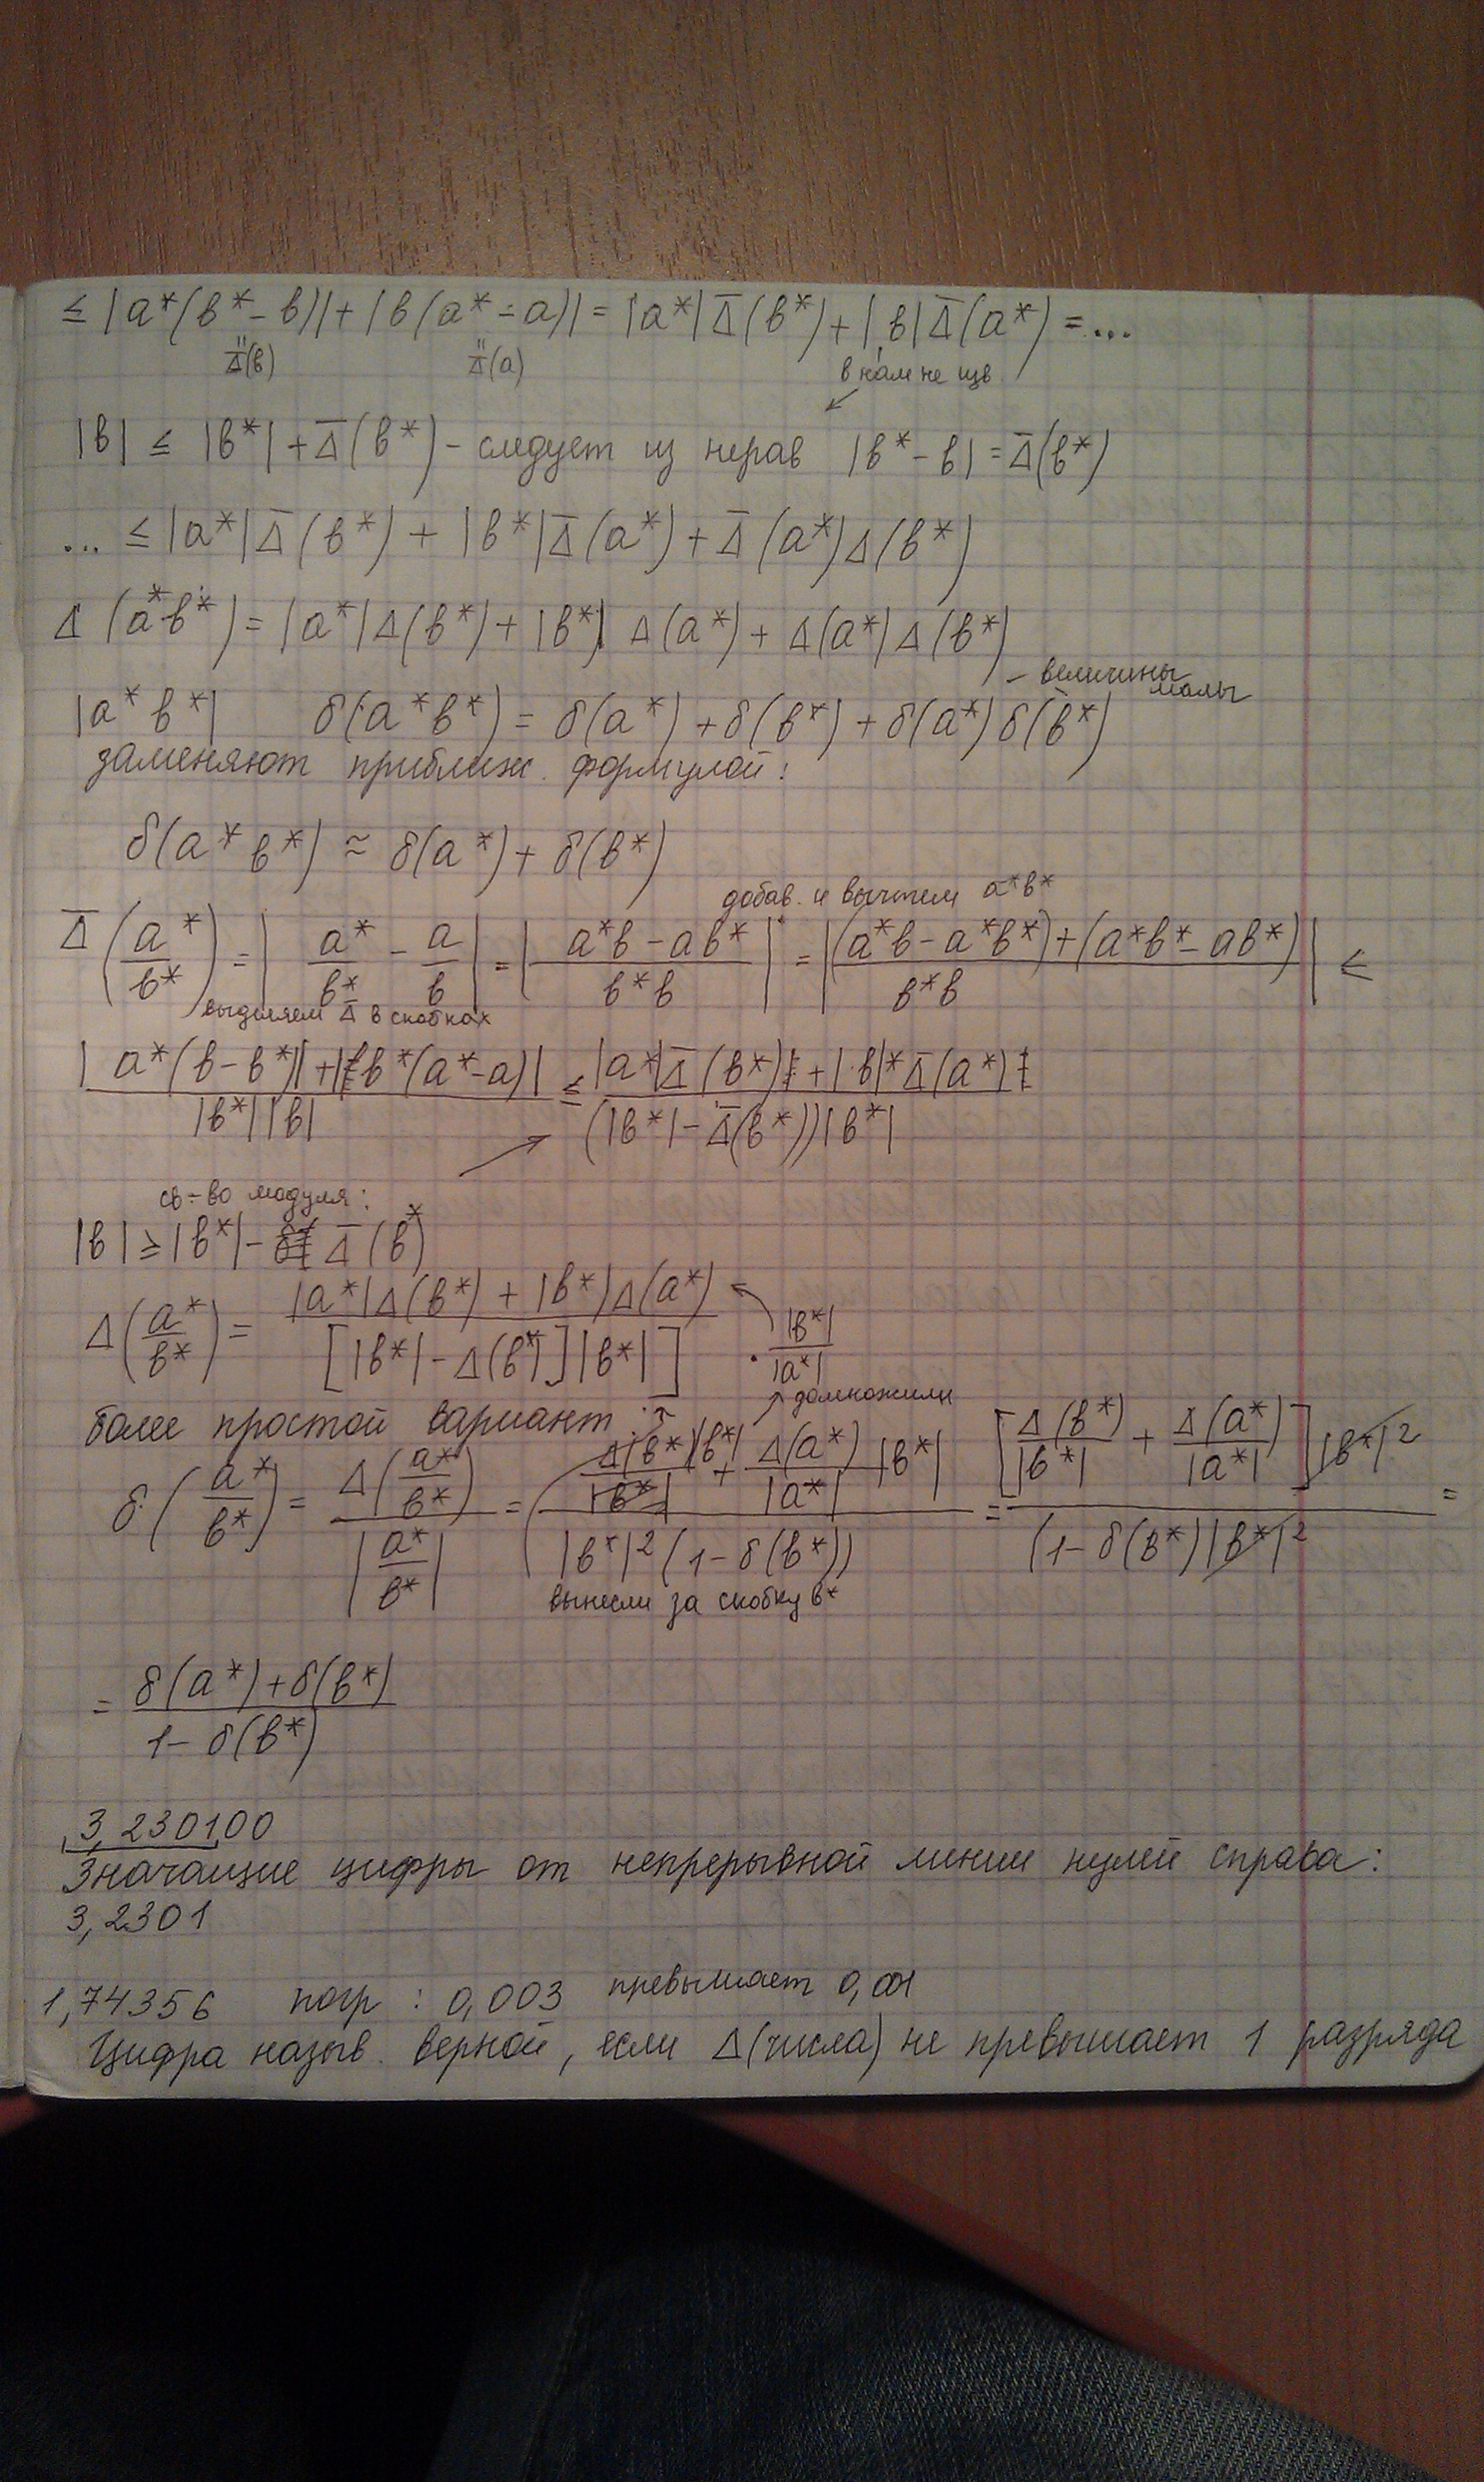 ≤ |a*(b* - b)| + |b(a* - a)| = |a*| Δ̄(b*) + |b| Δ̄(a*) = ...
" Δ̄(b) " Δ̄(a) b нам не
|b| ≤ |b*| + Δ̄(b*) - следует из нерав |b* - b| = Δ̄(b*)
... ≤ |a*| Δ̄(b*) + |b*| Δ̄(a*) + Δ̄(a*) Δ(b*)
Δ(a*·b*) = |a*| Δ(b*) + |b*| Δ(a*) + Δ(a*) Δ(b*)
- величины малы
|a* b*| δ(a* b*) = δ(a*) + δ(b*) + δ(a*) δ(b*)
заменяют приближ. формулой:
δ(a* b*) ≈ δ(a*) + δ(b*)
добав. и вычтем a*b*
Δ̄(a*/b*) = |a*/b* - a/b| = |(a*b - ab*)/(b*b)| = |((a*b - a*b*) + (a*b* - ab*))/(b*b)| ≤
выделяем Δ̄ в скобках
(|a*(b - b*)| + |b*(a* - a)|)/(|b*||b|) ≤ (|a*| Δ̄(b*) + |b|* Δ̄(a*))/((|b*| - Δ̄(b*))|b*|)
св-во модуля:
|b| ≥ |b*| - Δ̄(b*)
Δ(a*/b*) = (|a*| Δ(b*) + |b*| Δ(a*))/([|b*| - Δ(b*)]|b*|) · |b*|/|a*|
домножили
более простой вариант:
δ(a*/b*) = Δ(a*/b*)/|a*/b*| = (Δ(b*)|b*|/|b*| + Δ(a*)/|a*| |b*|)/(|b*|²(1 - δ(b*))) = ([Δ(b*)/|b*| + Δ(a*)/|a*|]|b*|²)/((1 - δ(b*)|b*|²) =
вынесли за скобку b*
= (δ(a*) + δ(b*))/(1 - δ(b*))
3,230100
Значащие цифры от непрерывной линии нулей справа:
3,2301
1,74356 погр : 0,003 превышает 0,001
Цифра назыв. верной, если Δ(числа) не превышает 1 разряда